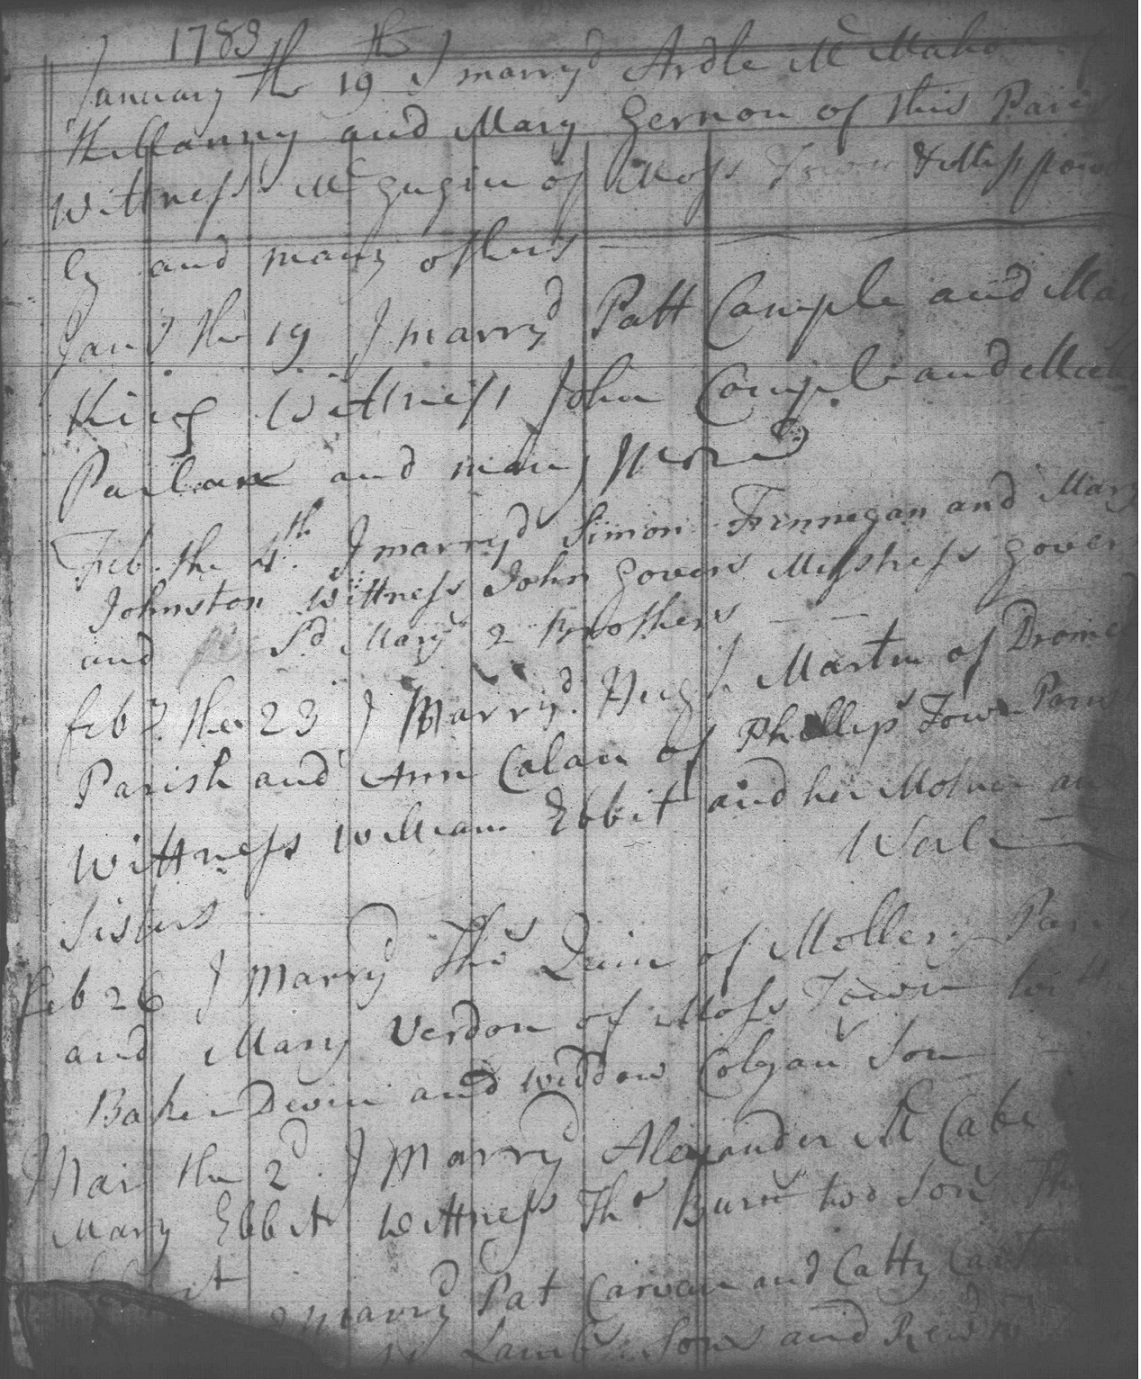 1783
January the 19th I marryd Ardle Mc Maho
Killanny and Mary Gernon of this Paris
Wittness Mc Gugin of Moss Town
ly and many others
Jany the 19 I marryd Patt Cample and Ma
King Wittness John Cample and
Parlan and many more
Feb. the 4th. I marryd Simon Finnegan and Mary
Johnston Wittness John Govers Misstress Gover
and Sd Mary 2 Brothers
feby the 23 I Marryd Hugh Martin of Drom
Parish and Ann Calan of Phillips Town Paris
Wittness William Ebbit and her Mother an
Sisters
Feb 26 I Marryd Thos Quin of Mollery Par
and Mary Verdon of Moss Town Witt
Baker Devin and Widdow Colgan Son
Mar the 2d. I Marryd Alexander Mc Cabe
Mary Ebbit Wittness Tho Burn two Son
marryd Pat Carvan and Catty
Lambs Sons and